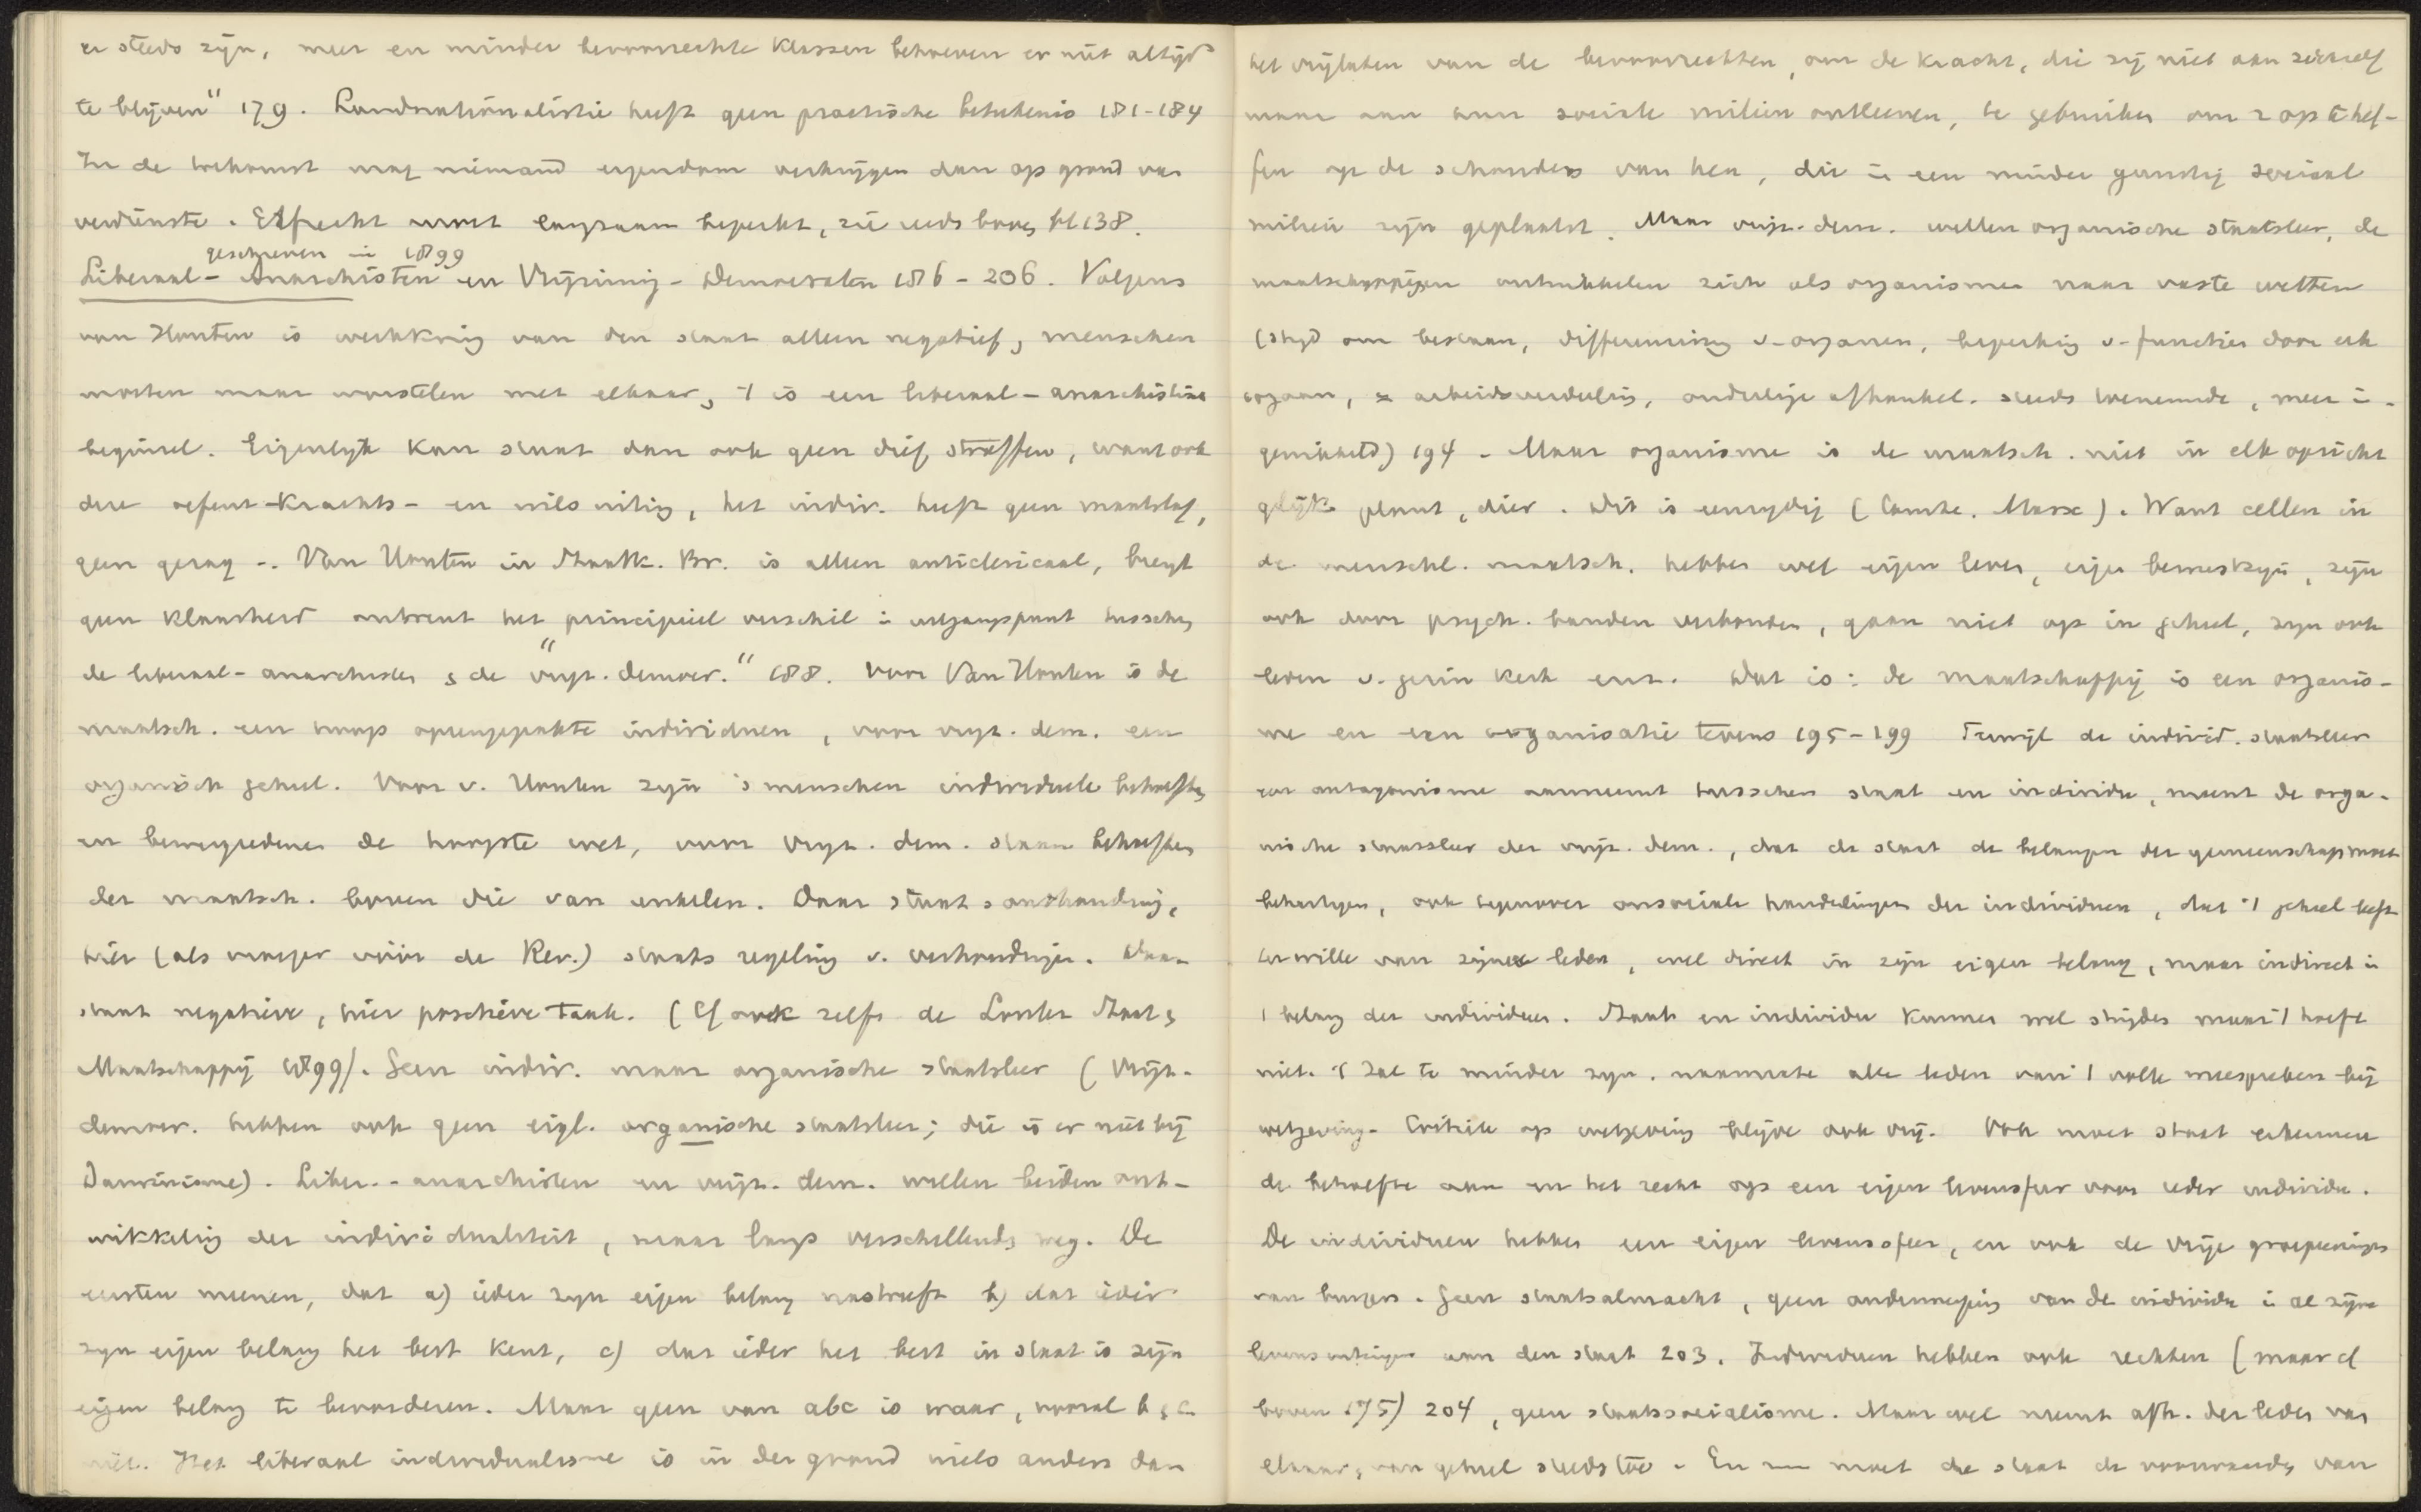 er steeds zijn, meer en minder bevoorrechte klassen behoeven er niet altijd
te blijven" 179. Landnationalisatie heeft geen practische beteekenis 181-184
In de toekomst mag niemand eigendom verkrijgen dan op grond van
verdienste. Erfrecht wordt langzaam beperkt, zie reeds boven bl 138.
geschreven in 1899
Liberaal-Anarchisten en Vrijzinnig-Democraten 186-206. Volgens
van Houten is werkkring van den staat alleen negatief, menschen
moeten maar worstelen met elkaar, 't is een liberaal-anarchistisch
beginsel. Eigenlijk kan staat dan ook geen dief straffen, want ook
deze oefent krachts- en wilsuiting, het indiv. heeft geen maatstaf,
geen gezag -. Van Houten in Staatk. Br. is alleen anticlericaal, brengt
geen klaarheid omtrent het principieel verschil in uitgangspunt tusschen
de liberaal-anarchisten & de "vrijz. democr." 188. Voor Van Houten is de
maatsch. een hoop opeengepakte individuen, voor vrijz. dem. een
organisch geheel. Voor v. Houten zijn 's menschen individueele behoeften
en beweegredenen de hoogste wet, voor vrijz. dem. staan behoeften
der maatsch. boven die van enkelen. Daar staatsonthouding,
hier (als vroeger vóór de Rev.) staatsregeling v. verhoudingen. Daar
staat negatieve, hier positieve taak. (Cf ook zelfs de Louter Staat &
Maatschappij 1899). Geen indiv. maar organische staatsleer (Vrijz.
democr. hebben ook geen eigl. organische staatsleer; die is er niet bij
Darwinisme). Liber.-anarchisten en vrijz. dem. willen beiden ont-
wikkeling der individualiteit, maar langs verschillende weg. De
eersten meenen, dat a) ieder zijn eigen belang nastreeft b) dat ieder
zijn eigen belang het best kent, c) dat ieder het best in staat is zijn
eigen belang te bevorderen. Maar geen van abc is waar, vooral b & c
niet. Het liberaal individualisme is in den grond niets anders dan
het vrijlaten van de bevoorrechten, om de kracht, die zij niet aan zichzelf
maar aan hun sociale milieu ontleenen, te gebruiken om z op te hef-
fen op de schouders van hen, die in een minder gunstig sociaal
milieu zijn geplaatst. Maar vrijz. dem. willen organische staatsleer, de
maatschappijen ontwikkelen zich als organismen naar vaste wetten
(strijd om bestaan, differentiëering v. organen, beperking v. functies door elk
orgaan, arbeidsverdeeling, onderlinge afhankel. steeds toenemende, meer in-
gewikkeld) 194 - Maar organisme is de maatsch. niet in elk opzicht
gelijk plant, dier. Dit is eenzijdig (Comte. Marx). Want cellen in
de menschl. maatsch. hebben wel eigen leven, eigen bewustzijn, zijn
ook door psych. banden verbonden, gaan niet op in geheel, zijn ook
leden v. gezin kerk enz. Dat is: de maatschappij is een organis-
me en een organisatie tevens 195-199 Terwijl de individ. staatsleer
een antagonisme aanneemt tusschen staat en individu, meent de orga-
nische staatsleer der vrijz. dem., dat de staat de belangen der gemeenschap moet
behartigen, ook tegenover onsociale handelingen der individuen, dat 't geheel leeft
ter wille van zijne leden, wel direct in zijn eigen belang, maar indirect in
't belang der individuen. Staat en individu kunnen wel strijden maar 't hoeft
niet. 't Zal te minder zijn, naarmate alle leden van 't volk meespreken bij
wetgeving. Critiek op wetgeving blijve ook vrij. Ook moet staat erkennen
de behoefte aan en het recht op een eigen levenssfeer voor ieder individu.
De individuen hebben een eigen levenssfeer, en ook de vrije groepeeringen
van burgers. Geen staatsalmacht, geen onderwerping van de individu in al zijne
levensuitingen aan den staat 203. Individuen hebben ook rechten (maar cf
boven 175) 204, geen staatssocialisme. Maar wel neemt afh. der leden van
elkaar & van geheel steeds toe. En nu moet de staat de voorwaarden van